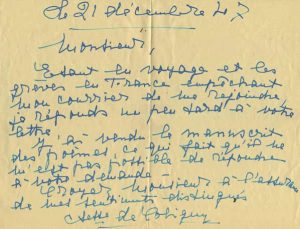 Le 21 décembre 47
Monsieur,
Etant en voyage et les
grèves en France empêchant
mon courrier de me rejoindre
je réponds un peu tard à votre
lettre.
J'ai vendu le manuscrit
des poèmes ce qui fait qu'il ne
m'est pas possible de répondre
à votre demande.
Croyez Monsieur à l'assurance
de mes sentiments distingués
Ctesse de